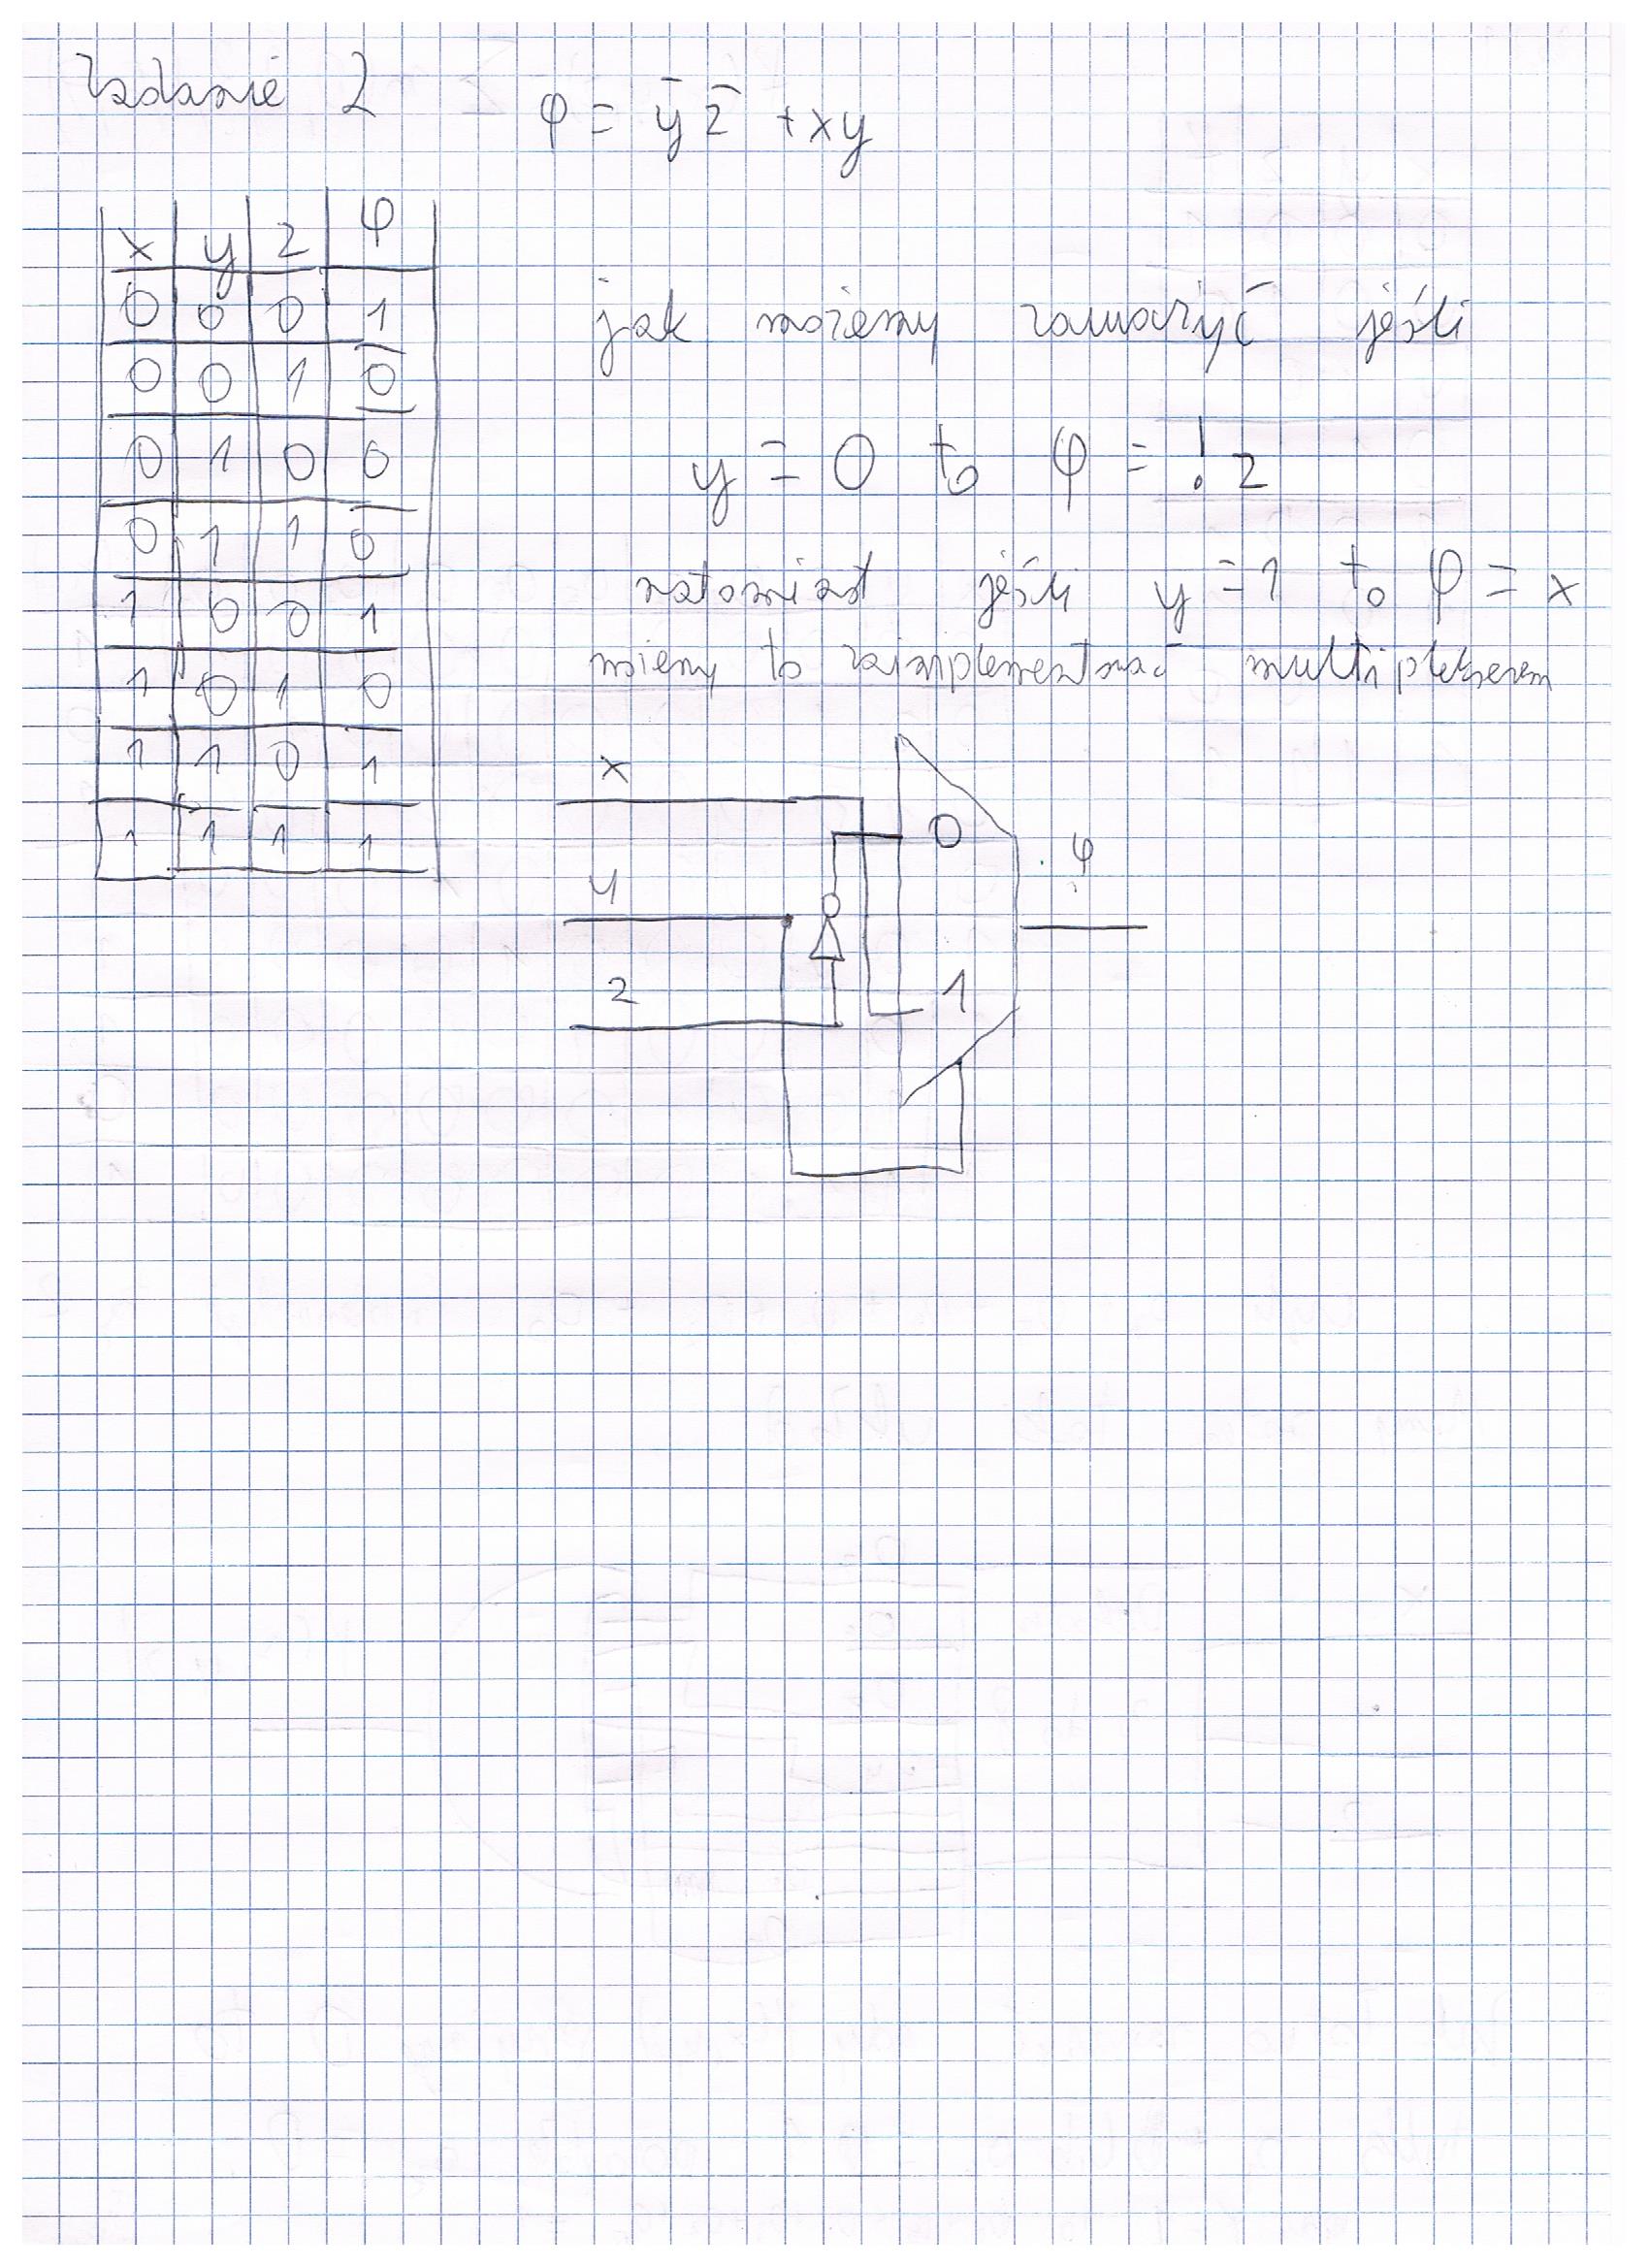 Zadanie 2
φ = ȳ z̄ + xy
x y z φ
0 0 0 1
0 0 1 0
0 1 0 0
0 1 1 0
1 0 0 1
1 0 1 0
1 1 0 1
1 1 1 1
jak możemy zauważyć jeśli
y = 0 to φ = !z
natomiast jeśli y = 1 to φ = x
możemy to zaimplementować multiplekserem
x
0
φ
y
z
1